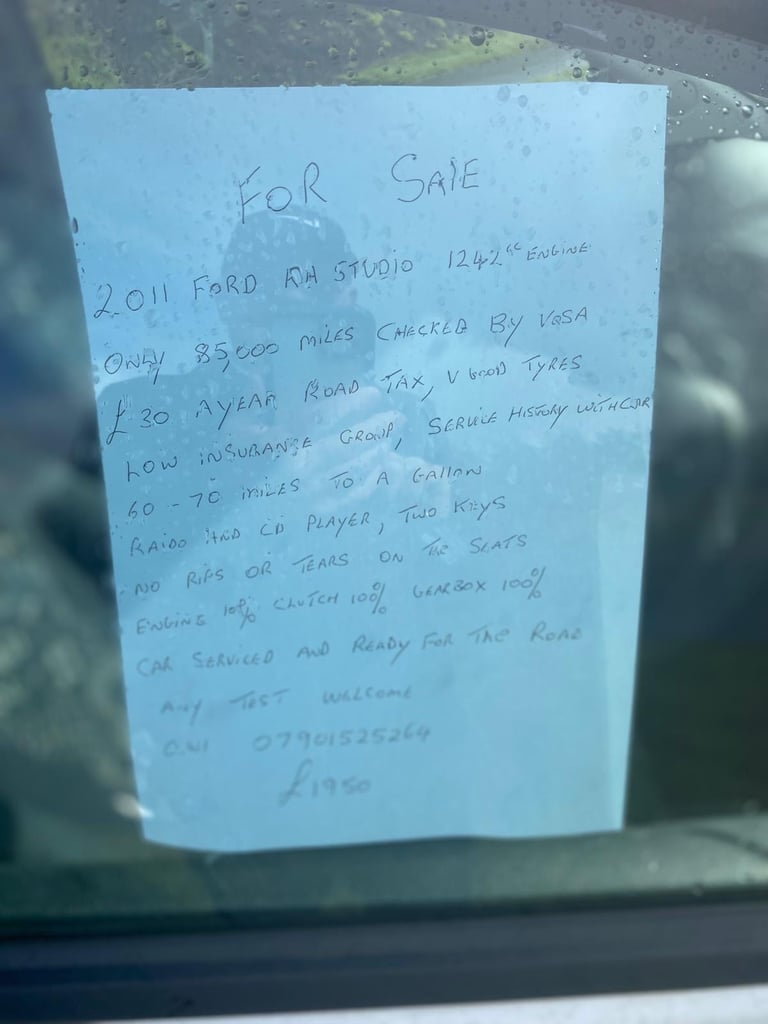 FOR SALE
2011 FORD KA STUDIO 1242cc ENGINE
ONLY 85,000 MILES CHECKED BY VOSA
£30 A YEAR ROAD TAX, V GOOD TYRES
LOW INSURANSE GROUP, SERVICE HISTORY WITH CAR
60-70 MILES TO A GALLON
RAIDO AND CD PLAYER, TWO KEYS
NO RIPS OR TEARS ON THE SEATS
ENGINE 100% CLUTCH 100% GEARBOX 100%
CAR SERVICED AND READY FOR THE ROAD
ANY TEST WELCOME
07901525264
£1950